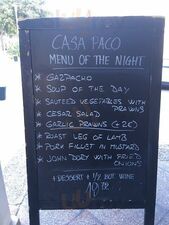 CASA PACO
MENU OF THE NIGHT
* GAZPACHO
* SOUP OF THE DAY
* SAUTEED VEGETABLES WITH
PRAWNS
* CESAR SALAD
* GARLIC PRAWNS (+2€)
* ROAST LEG OF LAMB
* PORK FILLET IN MUSTARD
* JOHN DORY WITH FRIED
ONIONS
+ DESSERT + 1/2 BOT WINE